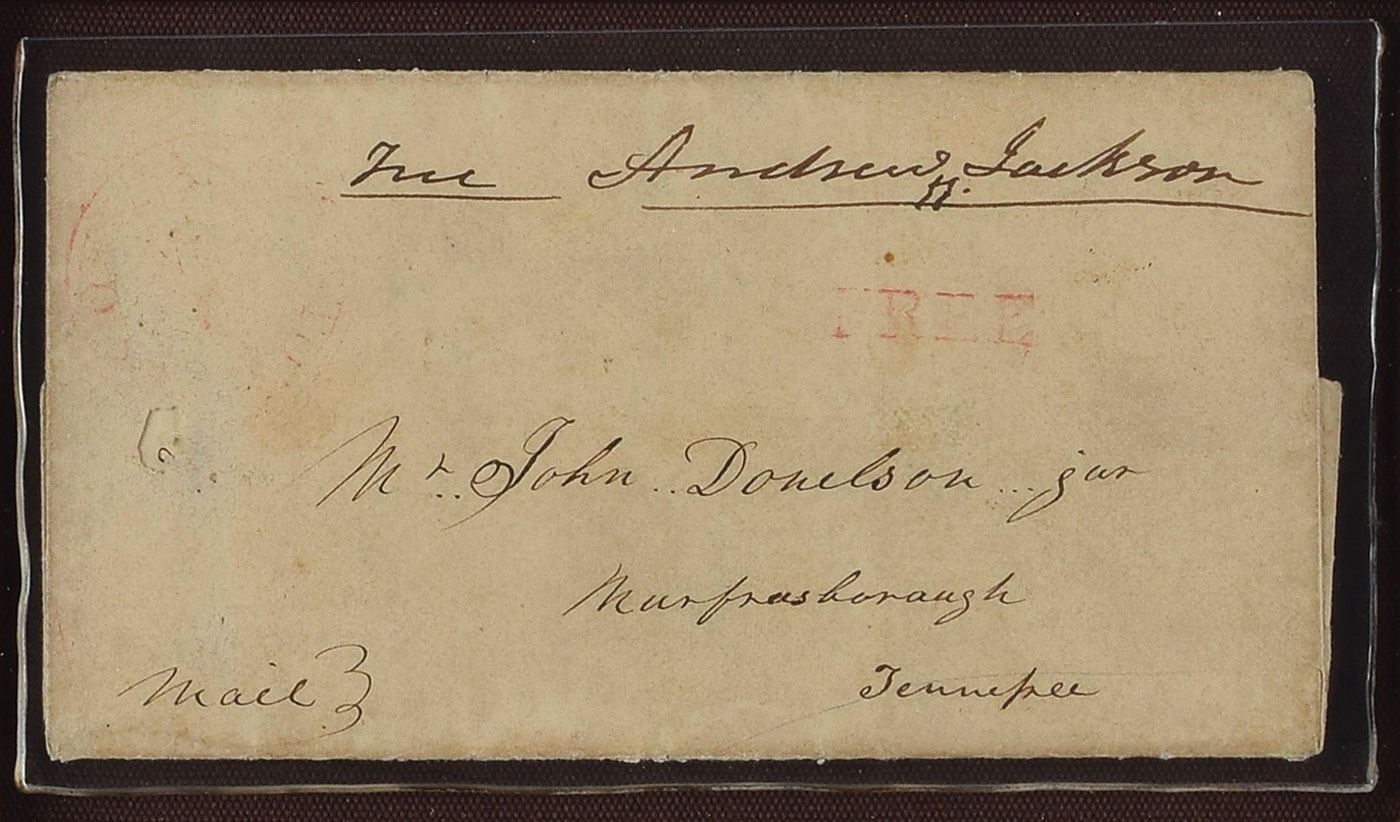 Free Andrew Jackson
FREE
Mr. John Donelson jur
Murfreasboraugh
Tennessee
Mail